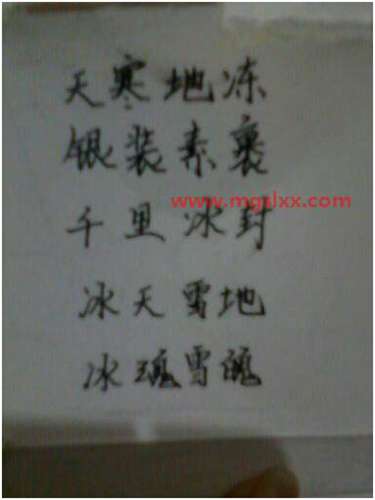 天寒地冻
银装素裹
www.mgslxx.com
千里冰封
冰天雪地
冰魂雪魄